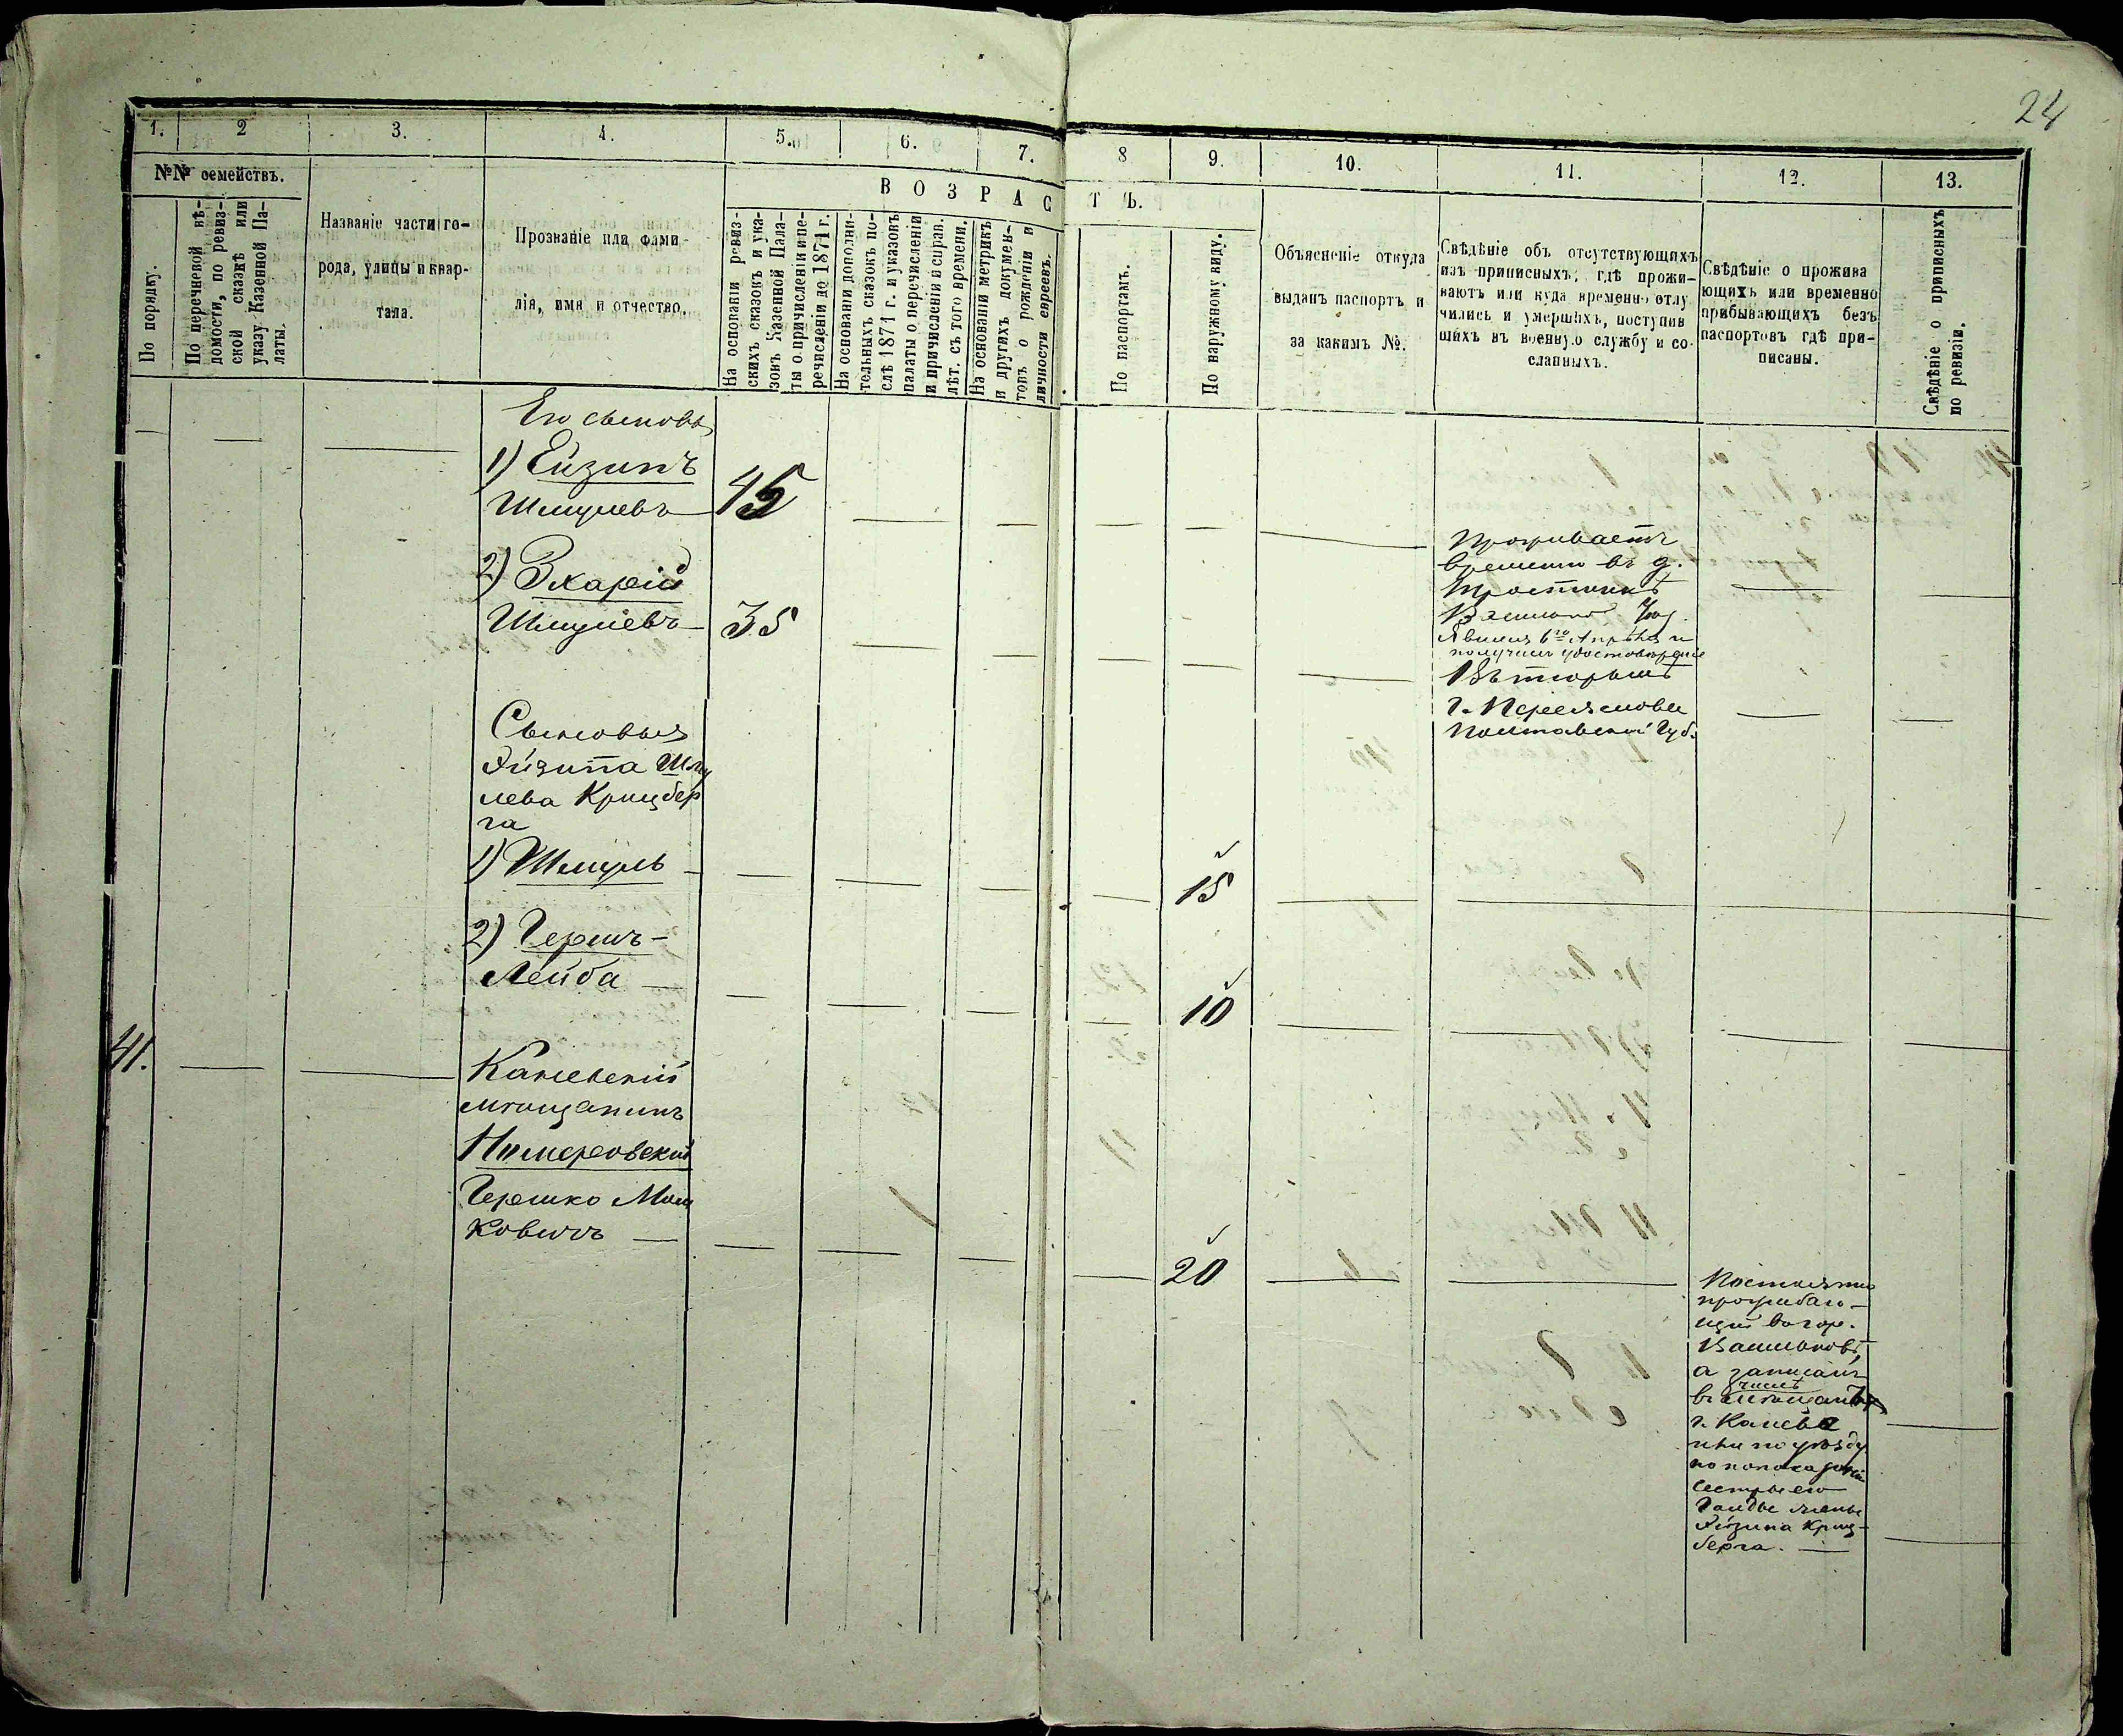 24
1. 2 3. 4. 5. 6. 7. 8 9. 10. 11. 12. 13.
№№ семействъ.
По порядку.
По перечневой вѣ-
домости, по ревиз-
ской сказкѣ или
указу Казенной Па-
латы.
Названіе части го-
рода, улицы и квар-
тала.
Прозваніе или фами-
лія, имя и отчество.
ВОЗРАСТЪ.
На основаніи ревиз-
скихъ сказокъ и ука-
зовъ Казенной Пала-
ты о причисленіи и пе-
речисленіи до 1871 г.
На основаніи дополни-
тельныхъ сказокъ по-
слѣ 1871 г. и указовъ
палаты о перечисленіи
и причисленіи и справ.
лѣт. съ того времени.
На основаніи метрикъ
и другихъ докумен-
товъ о рожденіи и
личности евреевъ.
По паспортамъ.
По наружному виду.
Объясненіе откуда
выданъ паспортъ и
за какимъ №.
Свѣдѣніе объ отсутствующихъ
изъ приписныхъ; гдѣ прожи-
ваютъ или куда временно отлу
чились и умершихъ, поступив
шихъ въ военную службу и со-
сланныхъ.
Свѣдѣніе о прожива
ющихъ или временно
прибывающихъ безъ
паспортовъ гдѣ при-
писаны.
Свѣдѣніе о приписныхъ
по ревизіи.
Его сыновья
1) Ейзипъ
Шмулевъ 45
Проживаетъ
временно въ д.
2) Зхарій
Шмулевъ 35
Явился 6го Апрѣля и
получилъ удостовѣреніе
г. Переяславъ
Полтавской Губ.
Сыновья
Айзипа Шму
лева Крицбер
га
1) Шмуль 15
2) Гершъ-
Лейба 10
41. Каневскій
мѣщанинъ
Немеровскій
Гершко Мош
ковичъ 20
Постоянно
проживаю-
щій в гор.
Васильковѣ,
а записанъ
числѣ
въ мѣщанъ
г. Канева
или по уѣзду
но по показанію
сестры его
Гольды жены
Айзипа Криц-
берга.